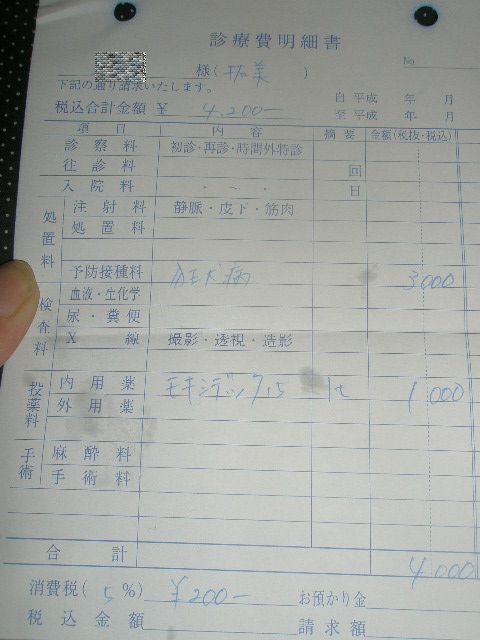 診療費明細書
No
様( 拓美 )
下記の通り請求いたします。
自 平成 年 月
税込合計金額 ¥ 4,200-
至 平成 年 月
項 目 内 容 摘 要 金額(税抜・税込)
診察料 初診・再診・時間外特診
往診料 回
入院料 ・ ~ ・ 日
処置料
注射料 静脈・皮下・筋肉
処置料
予防接種料 狂犬病 3000
検査料
血液・生化学
尿・糞便
X線 撮影・透視・造影
投薬料
内用薬 モキシデック15 1t 1000
外用薬
手術
麻酔料
手術料
合 計 4000
消費税( 5 %) ¥200- お預かり金
税込金額 請求額